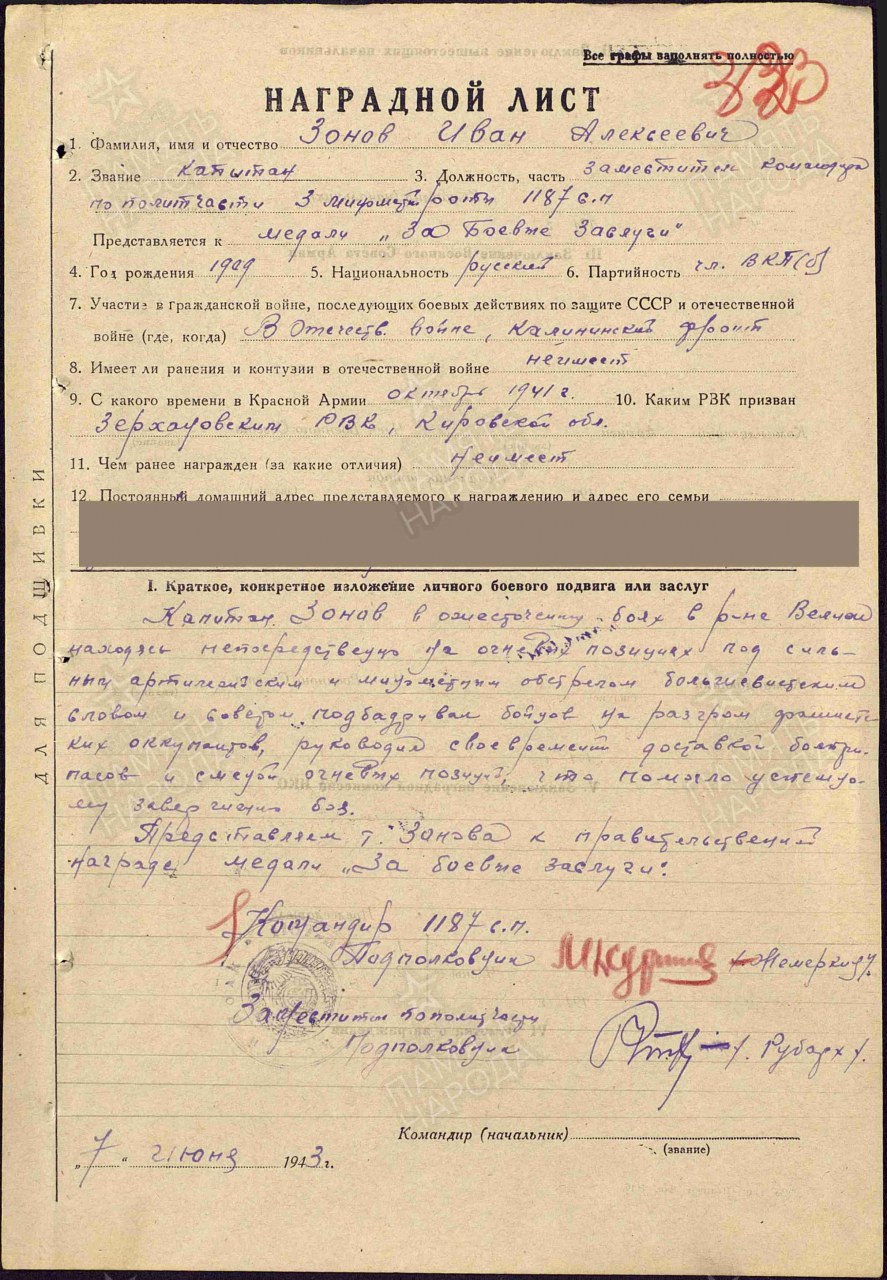 Все графы заполнять полностью
323
НАГРАДНОЙ ЛИСТ
1. Фамилия, имя и отчество Зонов Иван Алексеевич
2. Звание Капитан 3. Должность, часть Заместитель командира
по политчасти 3 минометной роты 1187 с.п
Представляется к медали „За Боевые Заслуги"
4. Год рождения 1909 5. Национальность русский 6. Партийность чл. ВКП(б)
7. Участие в гражданской войне, последующих боевых действиях по защите СССР и отечественной
войне (где, когда) В Отечеств. войне, Калининский фронт
8. Имеет ли ранения и контузии в отечественной войне неимеет
9. С какого времени в Красной Армии октябрь 1941 г. 10. Каким РВК призван
РВК, Кировской обл.
11. Чем ранее награжден (за какие отличия) Неимеет
12. Постоянный домашний адрес представляемого к награждению и адрес его семьи
ДЛЯ ПОДШИВКИ
I. Краткое, конкретное изложение личного боевого подвига или заслуг
Капитан Зонов в ожесточенных боях в р-не
находясь непосредственно на огневых позициях под силь-
ным артиллерийским и минометным обстрелом большевистским
словом и советом подбадривал бойцов на разгром фашистс-
ких оккупантов, руководил своевремен доставкой боепри-
пасов и сменой огневых позиций, что помогло успешно-
му завершению боя.
Представляем т. Занова к правительственной
награде медали „За боевые заслуги".
Командир 1187 с.п.
Подполковник
Заместитель по политчасти
Подполковник /. Рубарх /.
Командир (начальник)
(звание)
„7" июня 1943 г.
ПАМЯТЬ НАРОДА